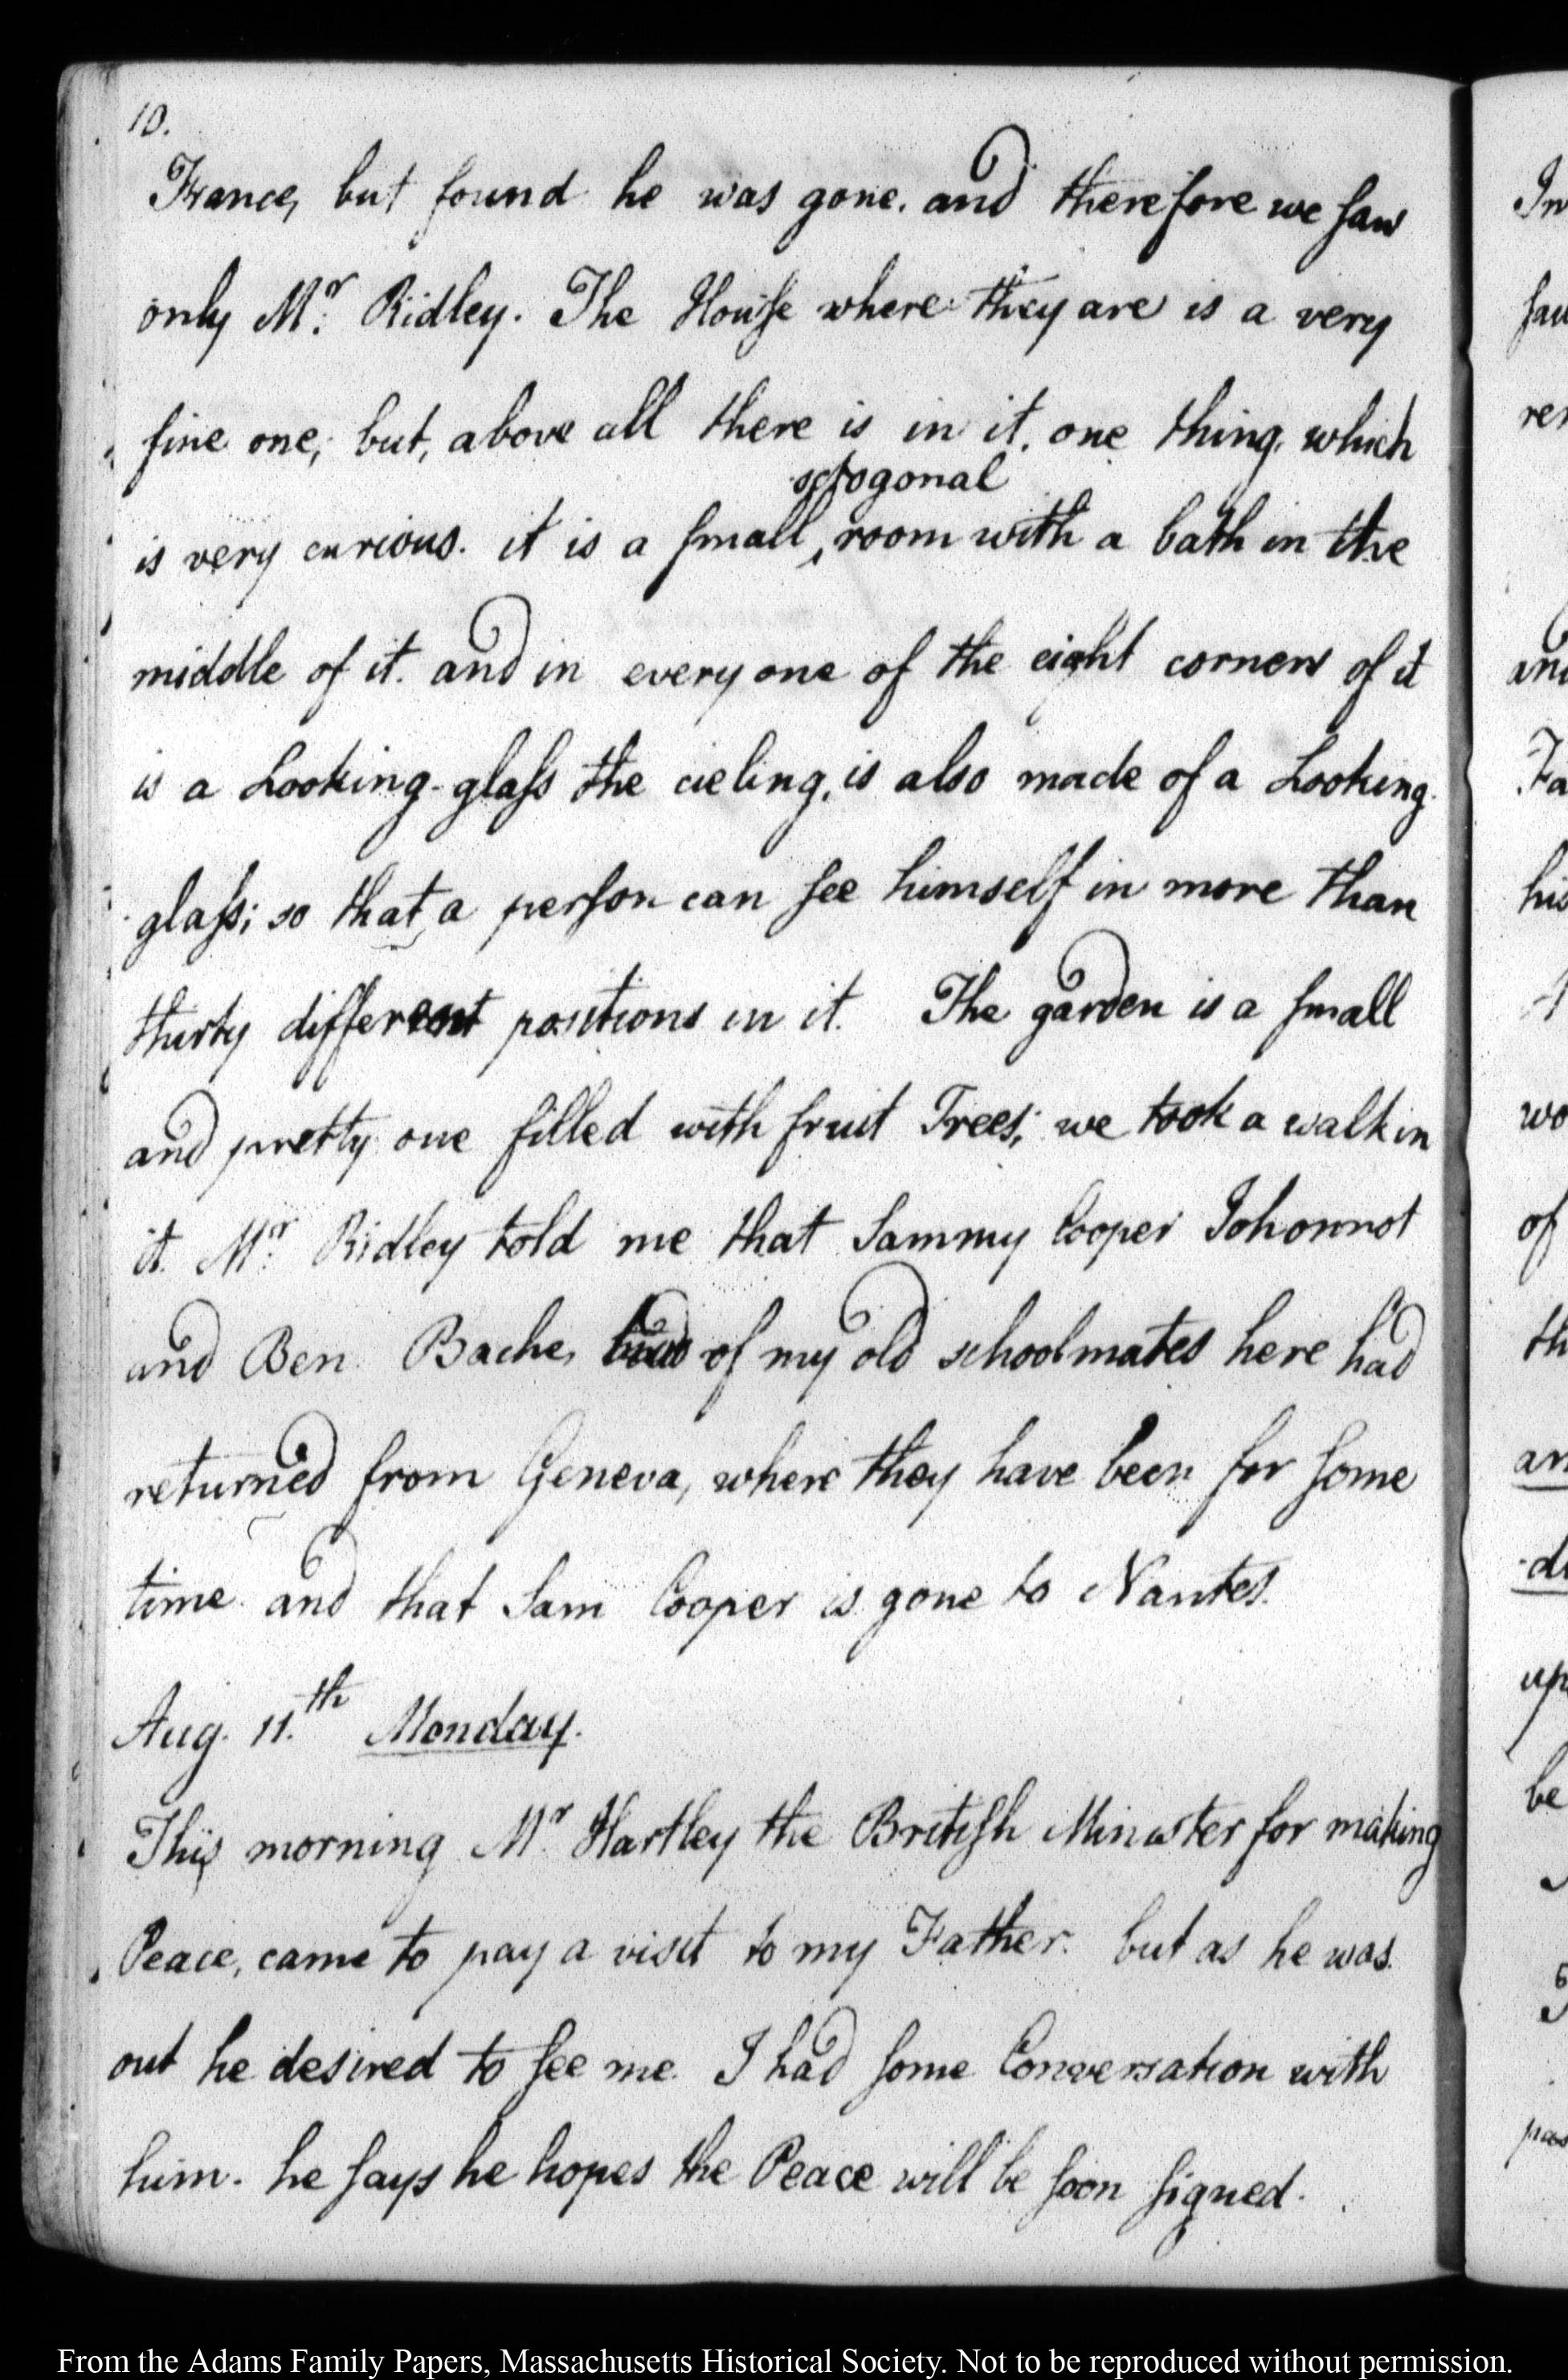 10.
France, but found he was gone. and therefore we saw
only Mr. Ridley. The House where they are is a very
fine one; but, above all there is in it. one thing, which
octogonal
is very curious. it is a small, room with a bath in the
middle of it. and in every one of the eight corners of it
is a Looking-glass the cieling, is also made of a Looking
glass; so that a person can see himself in more than
thirty different positions in it. The garden is a small
and pretty one filled with fruit Trees; we took a walk in
it. Mr. Ridley told me that Sammy Cooper Johonnot
and Ben Bache, of my old schoolmates here had
returned from Geneva, where they have been for some
time and that Sam Cooper is gone to Nantes.
Aug. 11.th Monday.
This morning Mr. Hartley the British Minister for making
Peace, came to pay a visit to my Father. but as he was
out he desired to see me. I had some Conversation with
him. he says he hopes the Peace will be soon signed.
In
and
Fa
his
wo
of
th
up
be
From the Adams Family Papers, Massachusetts Historical Society. Not to be reproduced without permission.